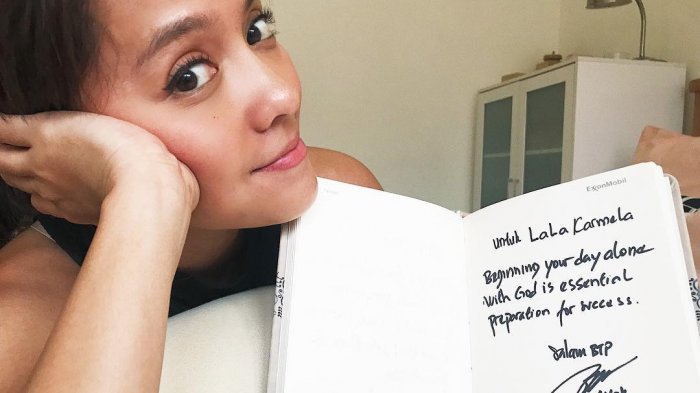 ExxonMobil
untuk LaLa Karmela
Beginning your day alone
with God is essential
preparation for success.
salam BTP